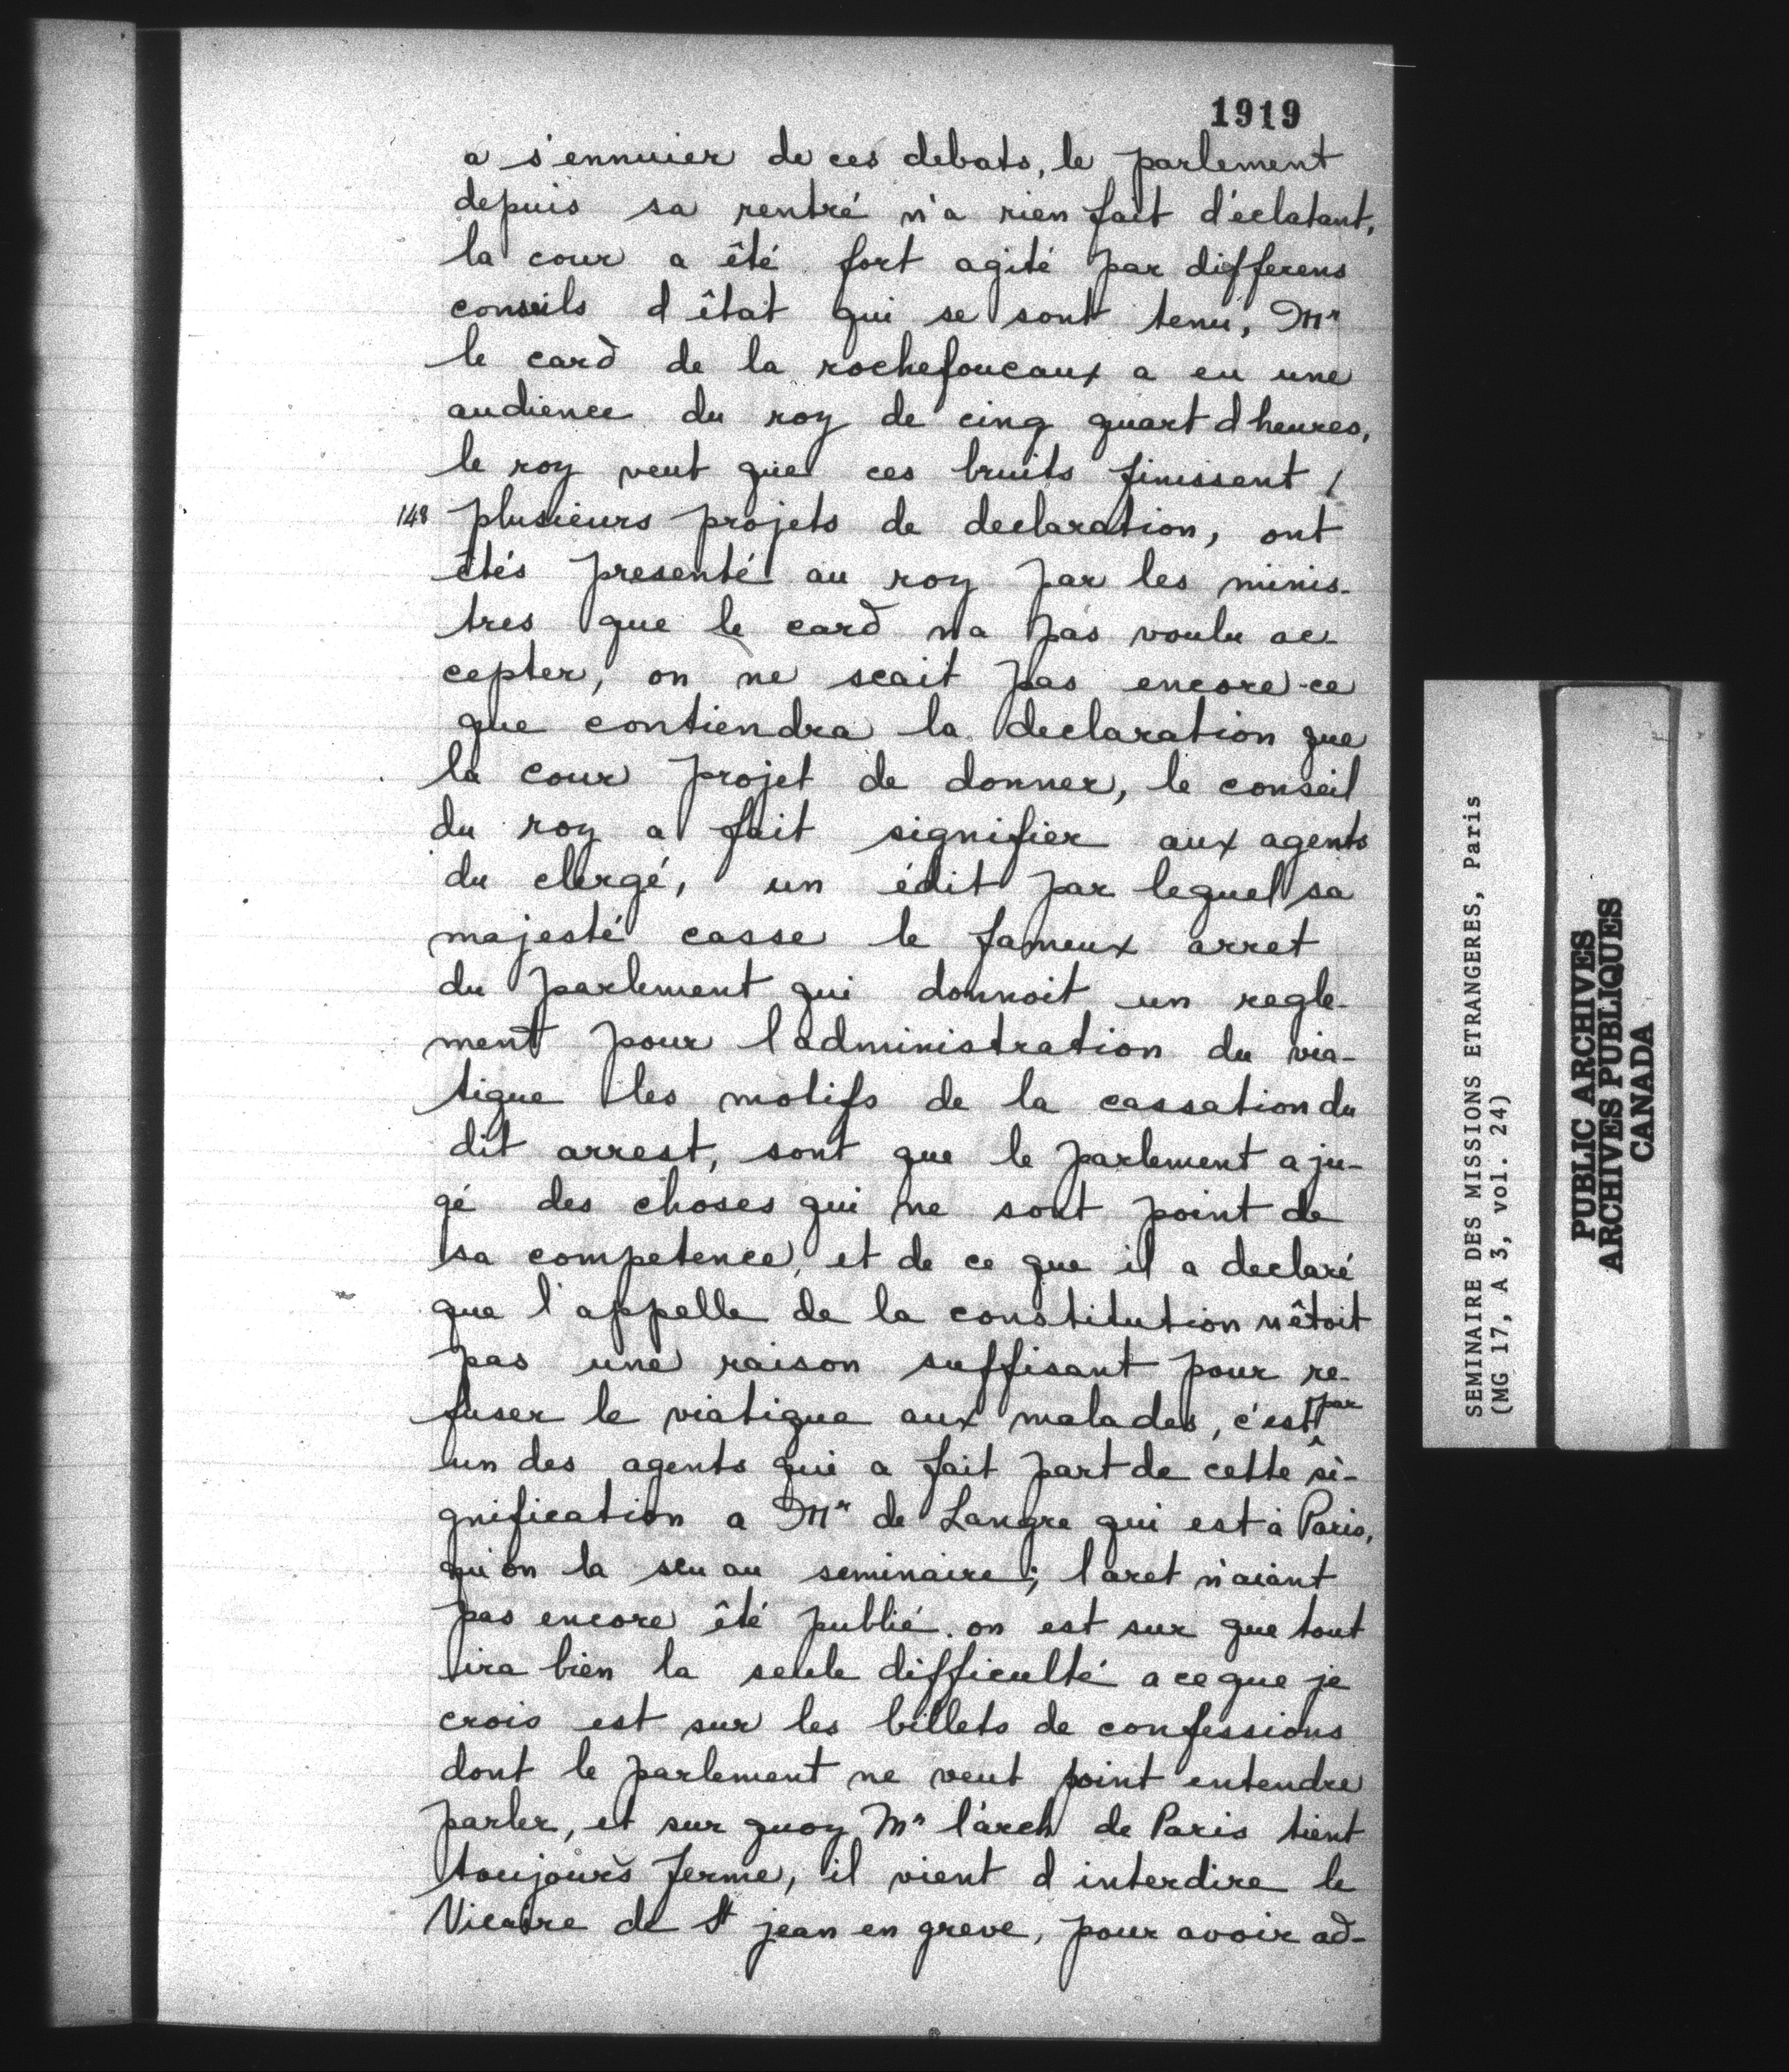 1919
a s'ennuier de ces debats, le parlement
depuis sa rentré n'a rien fait d'éclatant,
la cour a êté fort agité par differens
conseils d êtat qui se sont tenu, Mr
le card de la rochefoucaux a eu une
audience du roy de cinq quart d heures,
le roy veut que ces bruits finissent /
148 plusieurs projets de declaration, ont
étés presenté au roy par les minis-
tres que le card na pas voulu ac-
cepter, on ne scait pas encore-ce
que contiendra la declaration que
la cour projet de donner, le conseil
du roy a fait signifier aux agents
du clergé, un édit par lequel sa
majesté casse le fameux arret
du parlement qui donnoit un regle-
ment pour l'administration du via-
tique les motifs de la cassation du
dit arrest, sont que le parlement a ju-
gé des choses qui ne sont point de
sa competence, et de ce que il a declaré
que l'appelle de la constitution n'êtoit
pas une raison suffisant pour re-
fuser le viatique aux malades, c'est par
un des agents qui a fait part de cette si-
gnification a Mr de Langre qui est à Paris,
qu'on la scu au seminaire; l'aret n'aiant
pas encore êté publié. on est sur que tout
ira bien la seule difficulté a ce que je
crois est sur les billets de confessions
dont le parlement ne veut point entendre
parler, et sur quoy Mr l'arch de Paris tient
toujours ferme, il vient d interdire le
Vicaire de St jean en greve, pour avoir ad-
SEMINAIRE DES MISSIONS ETRANGERES, Paris
(MG 17, A 3, vol. 24)
PUBLIC ARCHIVES
ARCHIVES PUBLIQUES
CANADA